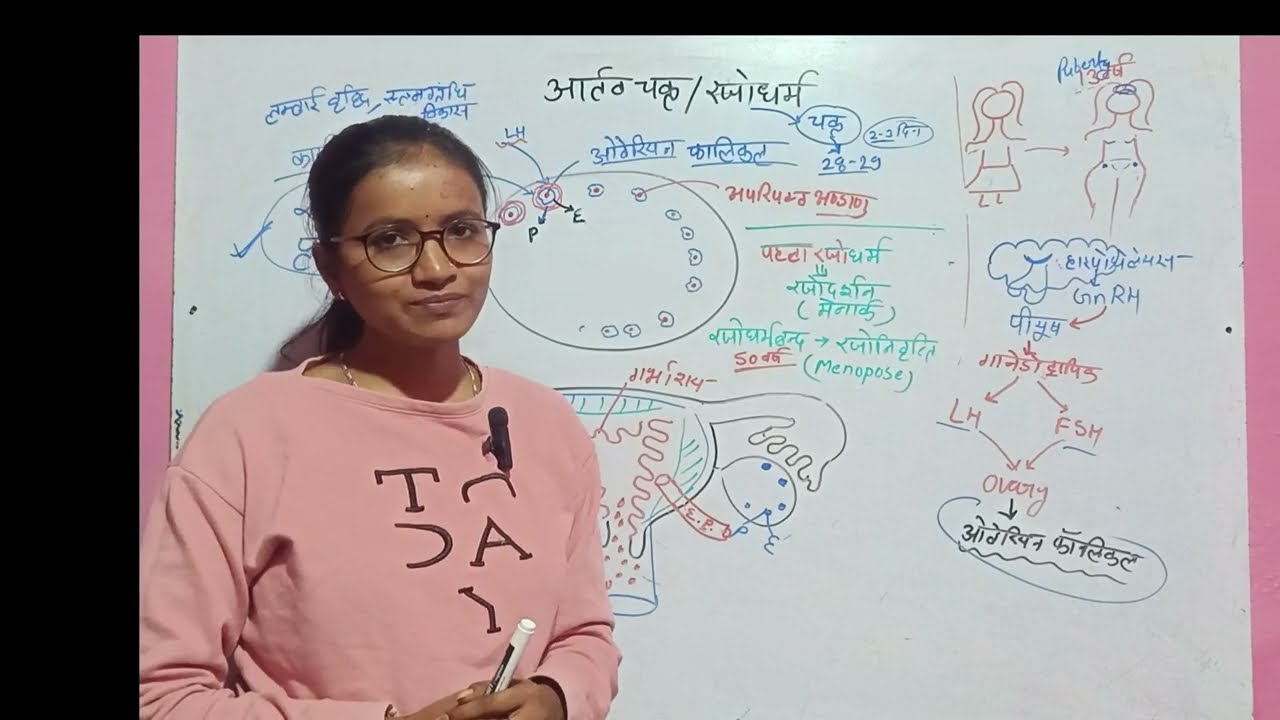 आर्तव चक्र / रजोधर्म
लम्बाई वृद्धि, स्तनग्रंथि
विकास
चक्र
2-2 दिन
28-29
LH
ओवेरियन फालिकल
P
E
अपरिपक्व अण्डाणु
पहला रजोधर्म
रजोदर्शन
(मेनार्क)
रजोधर्म बन्द → रजोनिवृत्ति
50 वर्ष
(Menopose)
गर्भाशय
E.P.
P
E
Puberty
वर्ष
हाइपोथैलेमस
GnRH
पीयूष
गोनेडोट्रॉपिक
LH
FSH
Ovary
ओवेरियन फॉलिकल
T
A
Y